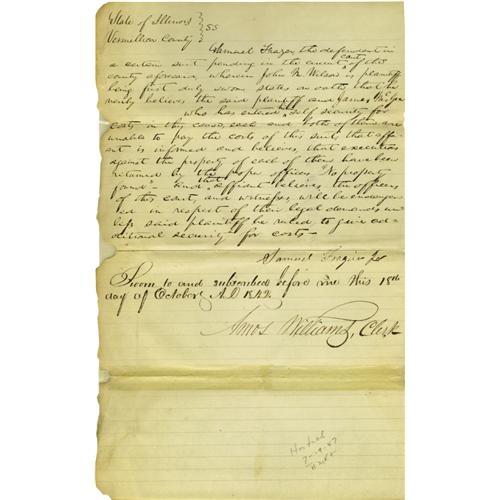 State of Illinois } SS
Vermillion County }
Samuel Frazer, the defendant in
a certain suit pending in the circuit court of the
county aforesaid wherein John M. Wilson is plaintiff
being first duly sworn states on oath, that he
verily believes the said plaintiff and James
who has entered self security for
costs in this cause, each and both of them are
unable to pay the costs of this suit, that affi-
ant is informed and believes, that executions
against the property of each of them have been
returned by the proper officer "No property
found" - And that affiant believes, the officers
of this court, and witnesses, will be endanger-
ed in respect of their legal demands, un-
less said plaintiff be ruled to give ad-
ditional security for costs -
Samuel
Sworn to and subscribed before me this 18th
day of October, A.D. 1842.
Amos Williams, Clerk